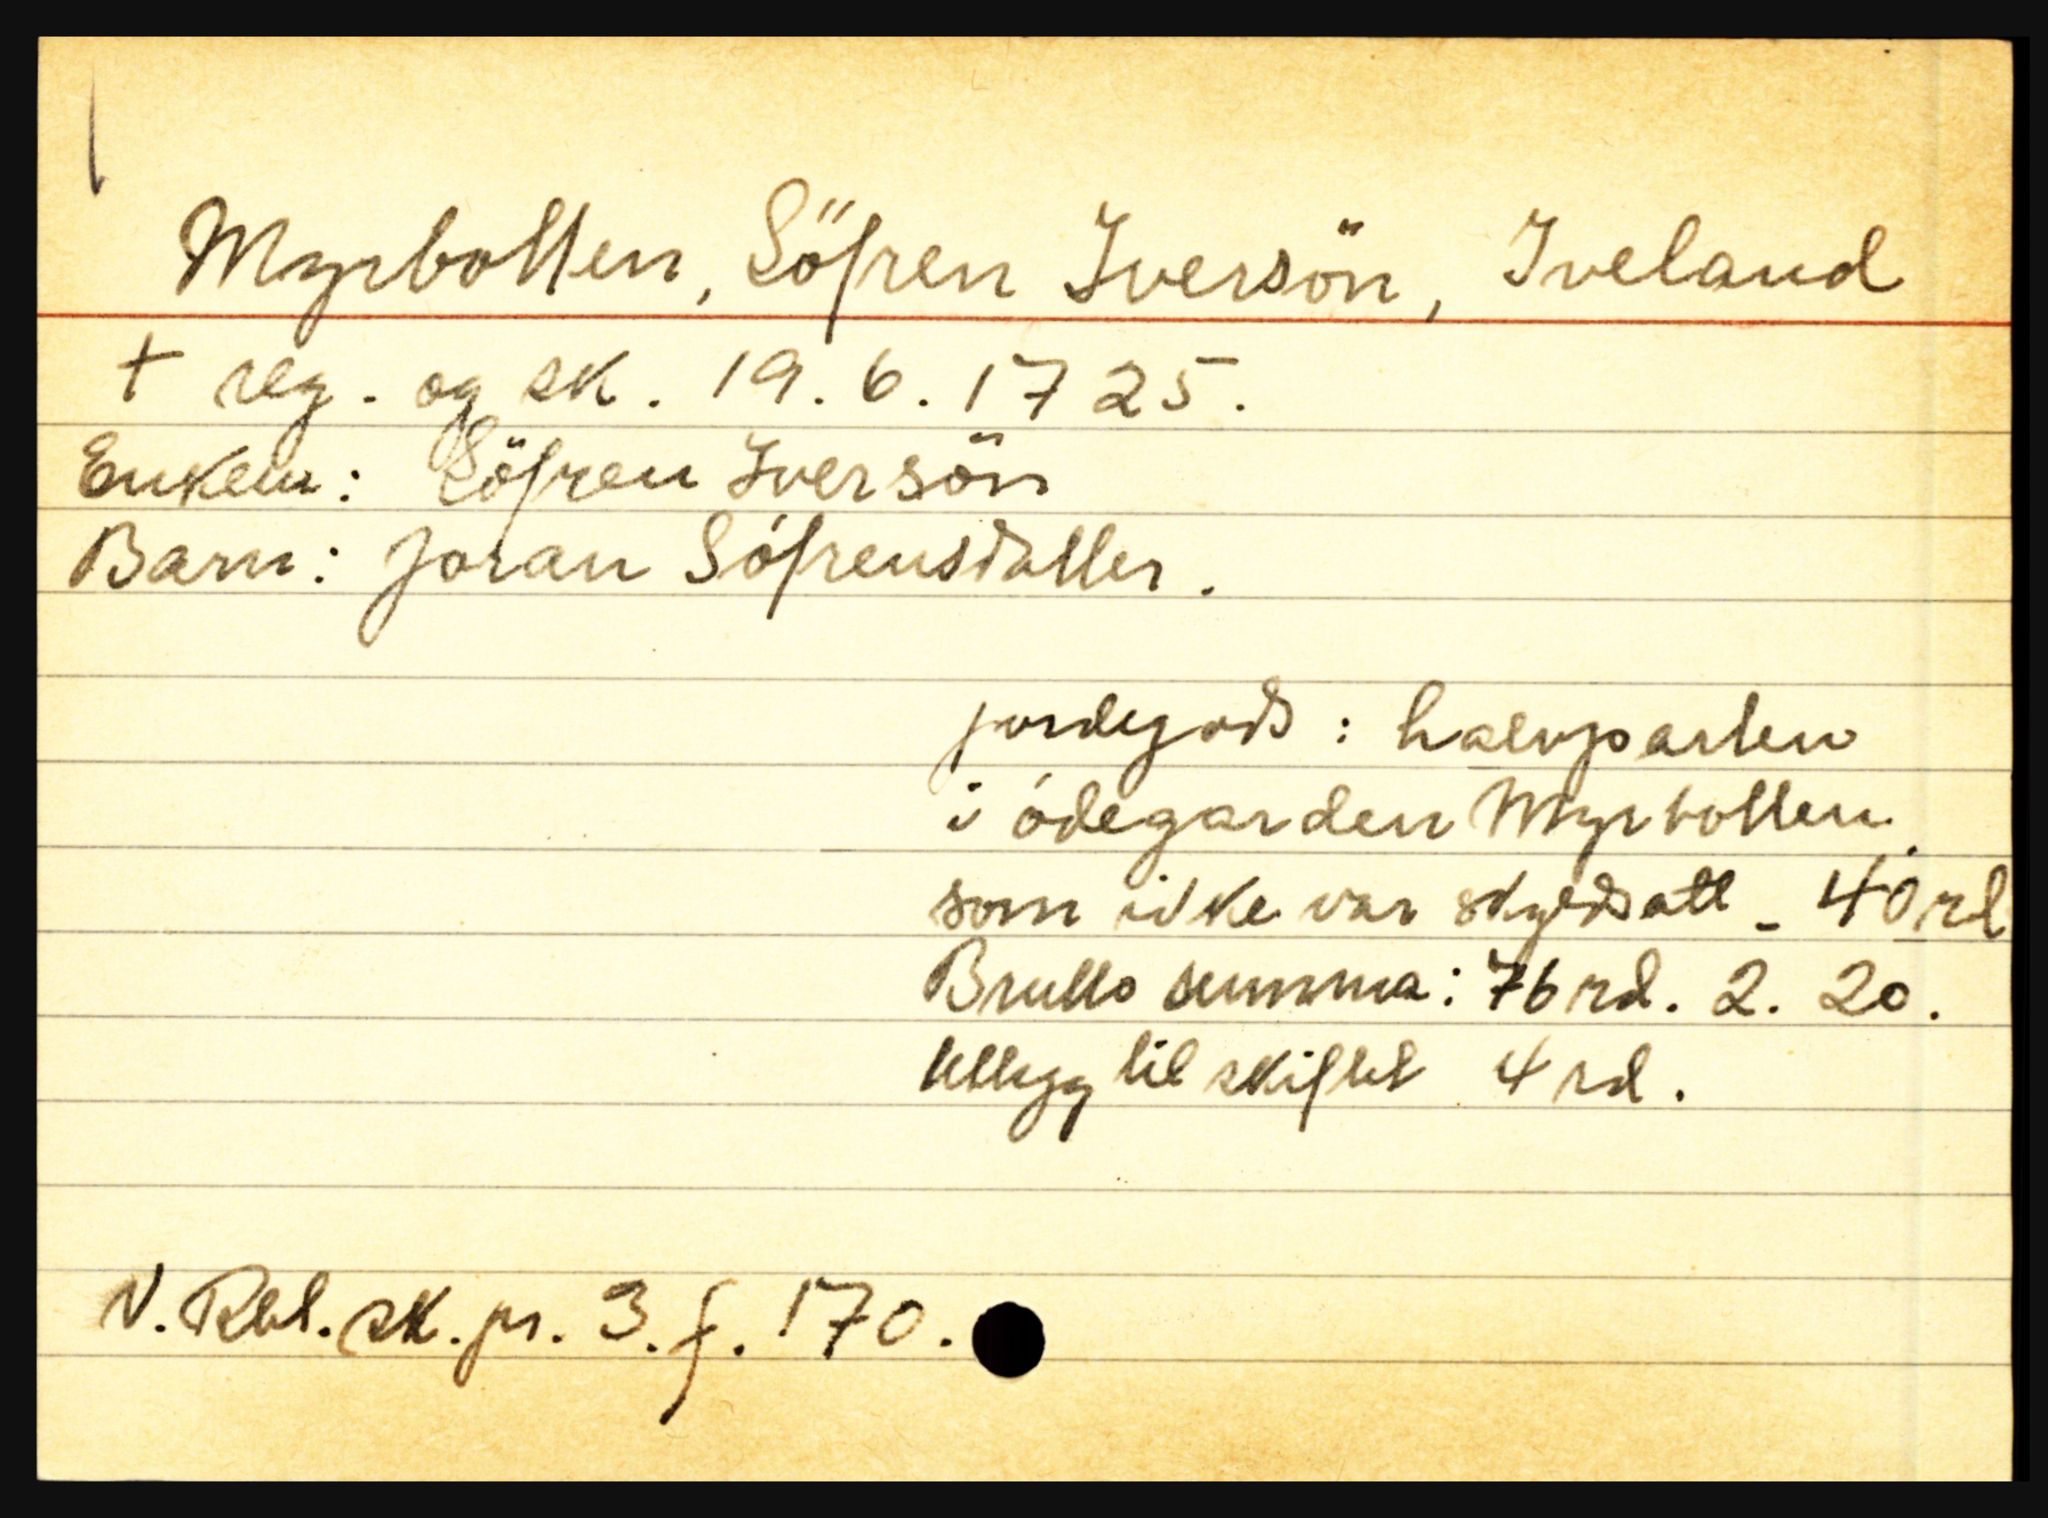 Myrbotten, Söfren Iversön, Iveland
+ reg. og sk. 19.6.1725.
Enkem: Söfren Iversön
Barn: Joran Söfrensdatter.
jordegods: halvparten
i ödegarden Myrbotten
som ikke var skyldsatt - 40 rd
Brutto summa: 76 rd. 2. 20.
Utlegg til skiftet 4 rd.
N. Rbl. sk. pr. 3. f. 170.